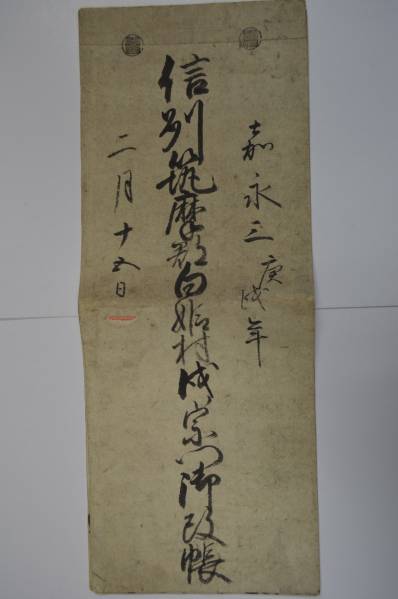 嘉永三庚戌年
信州筑摩郡白姫村戌宗門御改帳
二月十五日